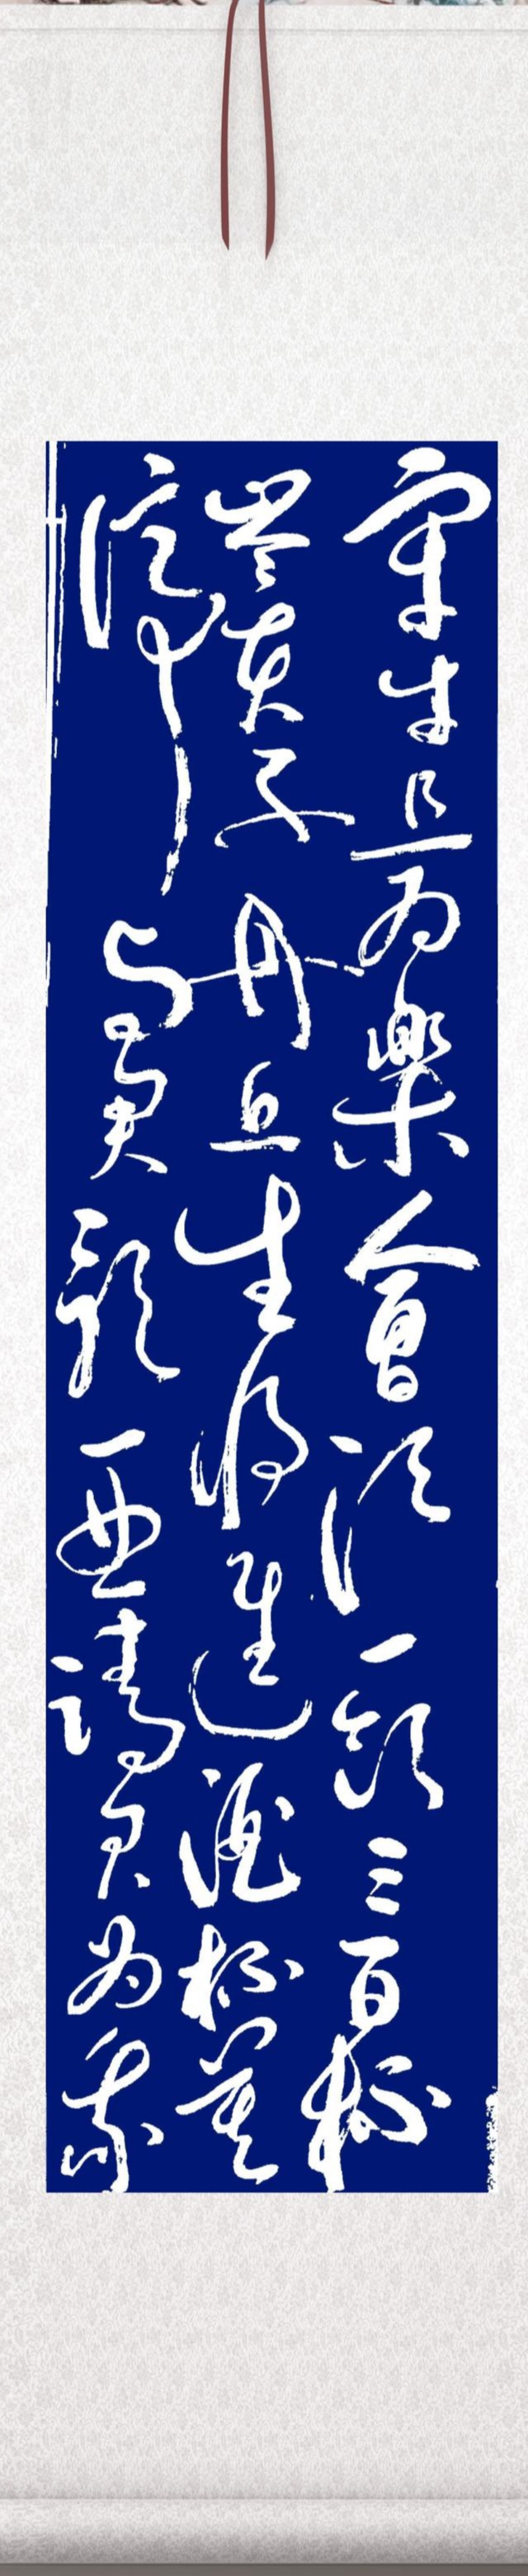 宰牛且为樂會須一飲三百杯
岑夫子丹丘生将進酒杯莫
停与君歌一曲請君为我